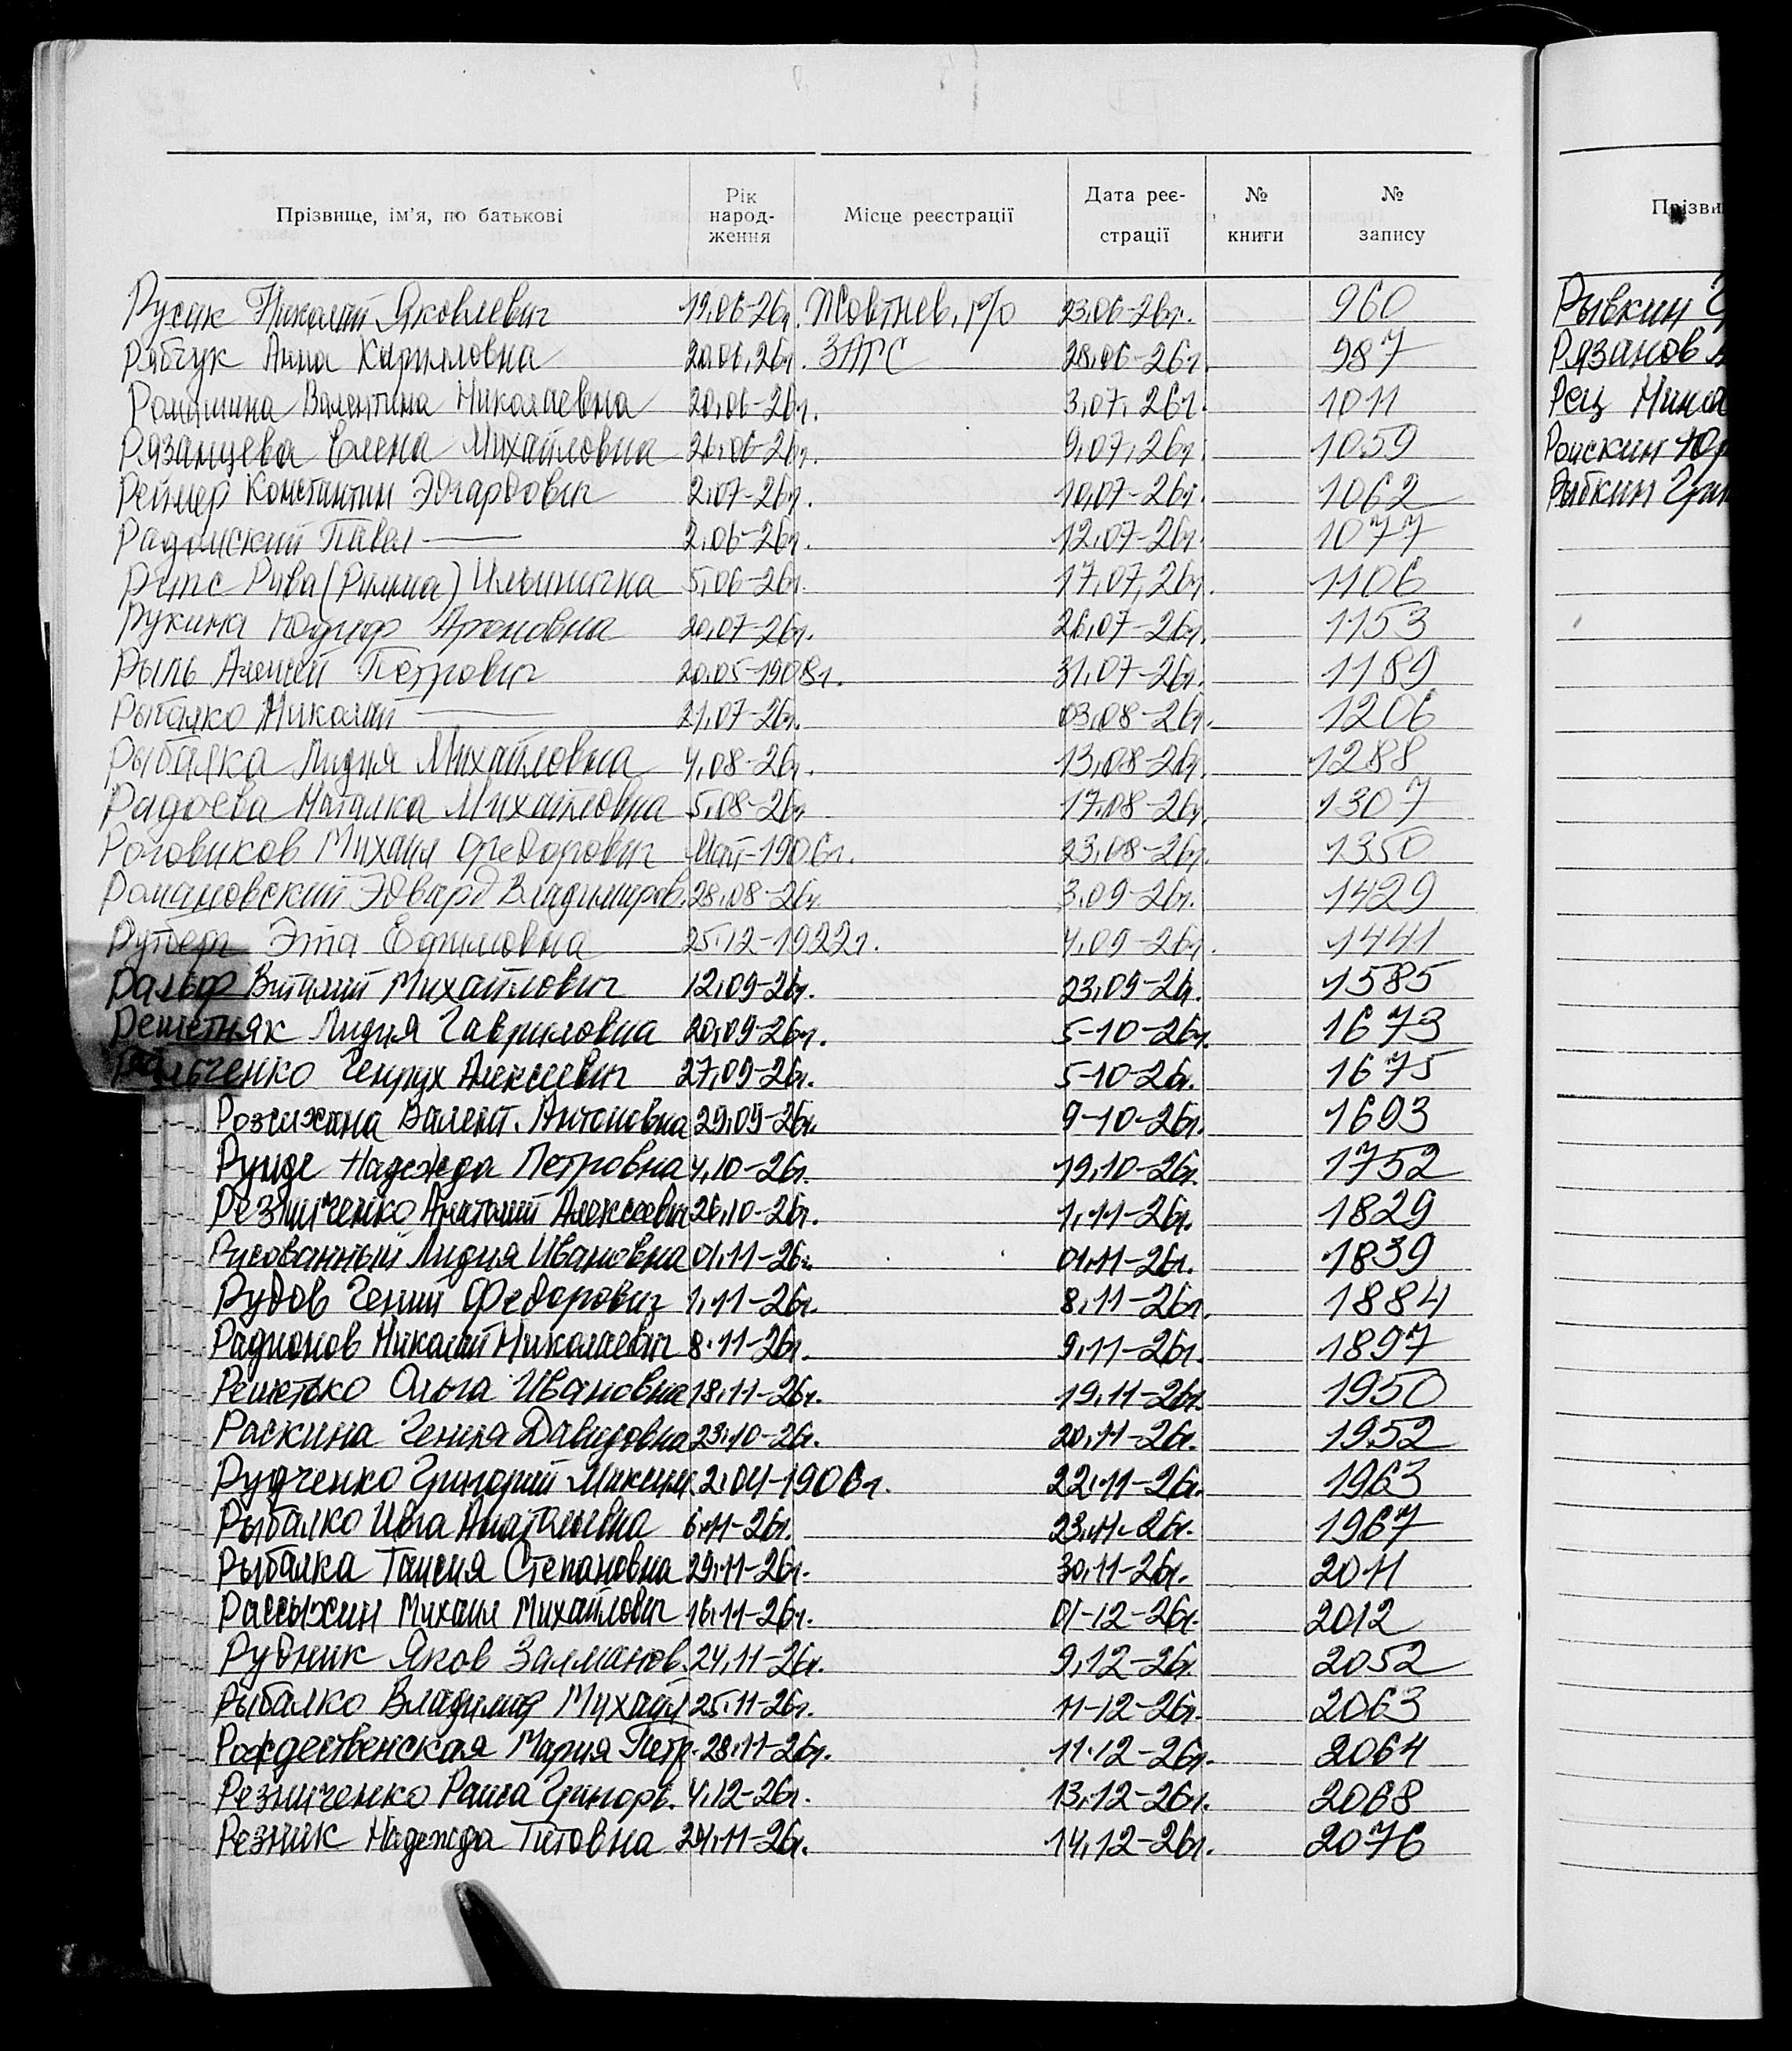 Прізвище, ім'я, по батькові Рік народ-ження Місце реєстрації Дата реє-страції № книги № запису
Русик Николай Яковлевич 19.06-26г. Жовтнев. р/о 23.06-26г. 960
Рябчук Анна Кирилловна 20.06.26г. ЗАГС 28.06-26г. 987
Ромашина Валентина Николаевна 20.06-26г. 3.07.26г. 1011
Рязанцева Елена Михайловна 26.06-26г. 9.07.26г. 1059
Реймер Константин Эдгардович 2.07-26г. 10.07-26г. 1062
Радомский Павел — 2.06-26г. 12.07-26г. 1077
Рива (Римма) Ильинична 5.06-26г. 17.07.26г. 1106
Рукина Юдифь Ароновна 20.07-26г. 26.07-26г. 1153
Рыль Алексей Петрович 20.05-1908г. 31.07-26г. 1189
Рыбалко Николай — 21.07-26г. 03.08-26г. 1206
Рыбалка Лидия Михайловна 4.08-26г. 13.08-26г. 1288
Радоева Наталка Михайловна 5.08-26г. 17.08-26г. 1307
Роговиков Михаил Федорович Май-1906г. 23.08-26г. 1350
Романовский Эдвард Владимиров. 28.08-26г. 3.09-26г. 1429
Эта Ефимовна 25.12-1922г. 4.09-26г. 1441
Ральф Виталий Михайлович 12.09-26г. 23.09-26г. 1585
Решетняк Лидия Гавриловна 20.09-26г. 5-10-26г. 1673
Ральченко Генрух Алексеевич 27.09-26г. 5-10-26г. 1675
Валент. Антоновна 29.09-26г. 9-10-26г. 1693
Рунде Надежда Петровна 4.10-26г. 19.10-26г. 1752
Резниченко Анатолий Алексеевич 26.10-26г. 1.11-26г. 1829
Рисованный Лидия Ивановна 01.11-26г. 01.11-26г. 1839
Рудов Гений Федорович 1.11-26г. 8.11-26г. 1884
Радионов Николай Николаевич 8.11-26г. 9.11-26г. 1897
Решетько Ольга Ивановна 18.11-26г. 19.11-26г. 1950
Раскина Гения Давидовна 23.10-26г. 20.11-26г. 1952
Рудченко Григорий Максим. 2.04-1906г. 22.11-26г. 1963
Рыбалко Инга Анатольевна 6.11-26г. 23.11-26г. 1967
Рыбалка Таисия Степановна 29.11-26г. 30.11-26г. 2011
Рассыхин Михаил Михайлович 16.11-26г. 01-12-26г. 2012
Рудник Яков Залманов. 24.11-26г. 9.12-26г. 2052
Рыбалко Владимир Михайл 25.11-26г. 11-12-26г. 2063
Рождественская Мария Петр. 28.11-26г. 11.12-26г. 2064
Резниченко Раиса Григорь. 4.12-26г. 13.12-26г. 2068
Резник Надежда Титовна 24.11-26г. 14.12-26г. 2076
Прізви
Рывкин
Рязанов
Рец Нина
Рыбкин Григ